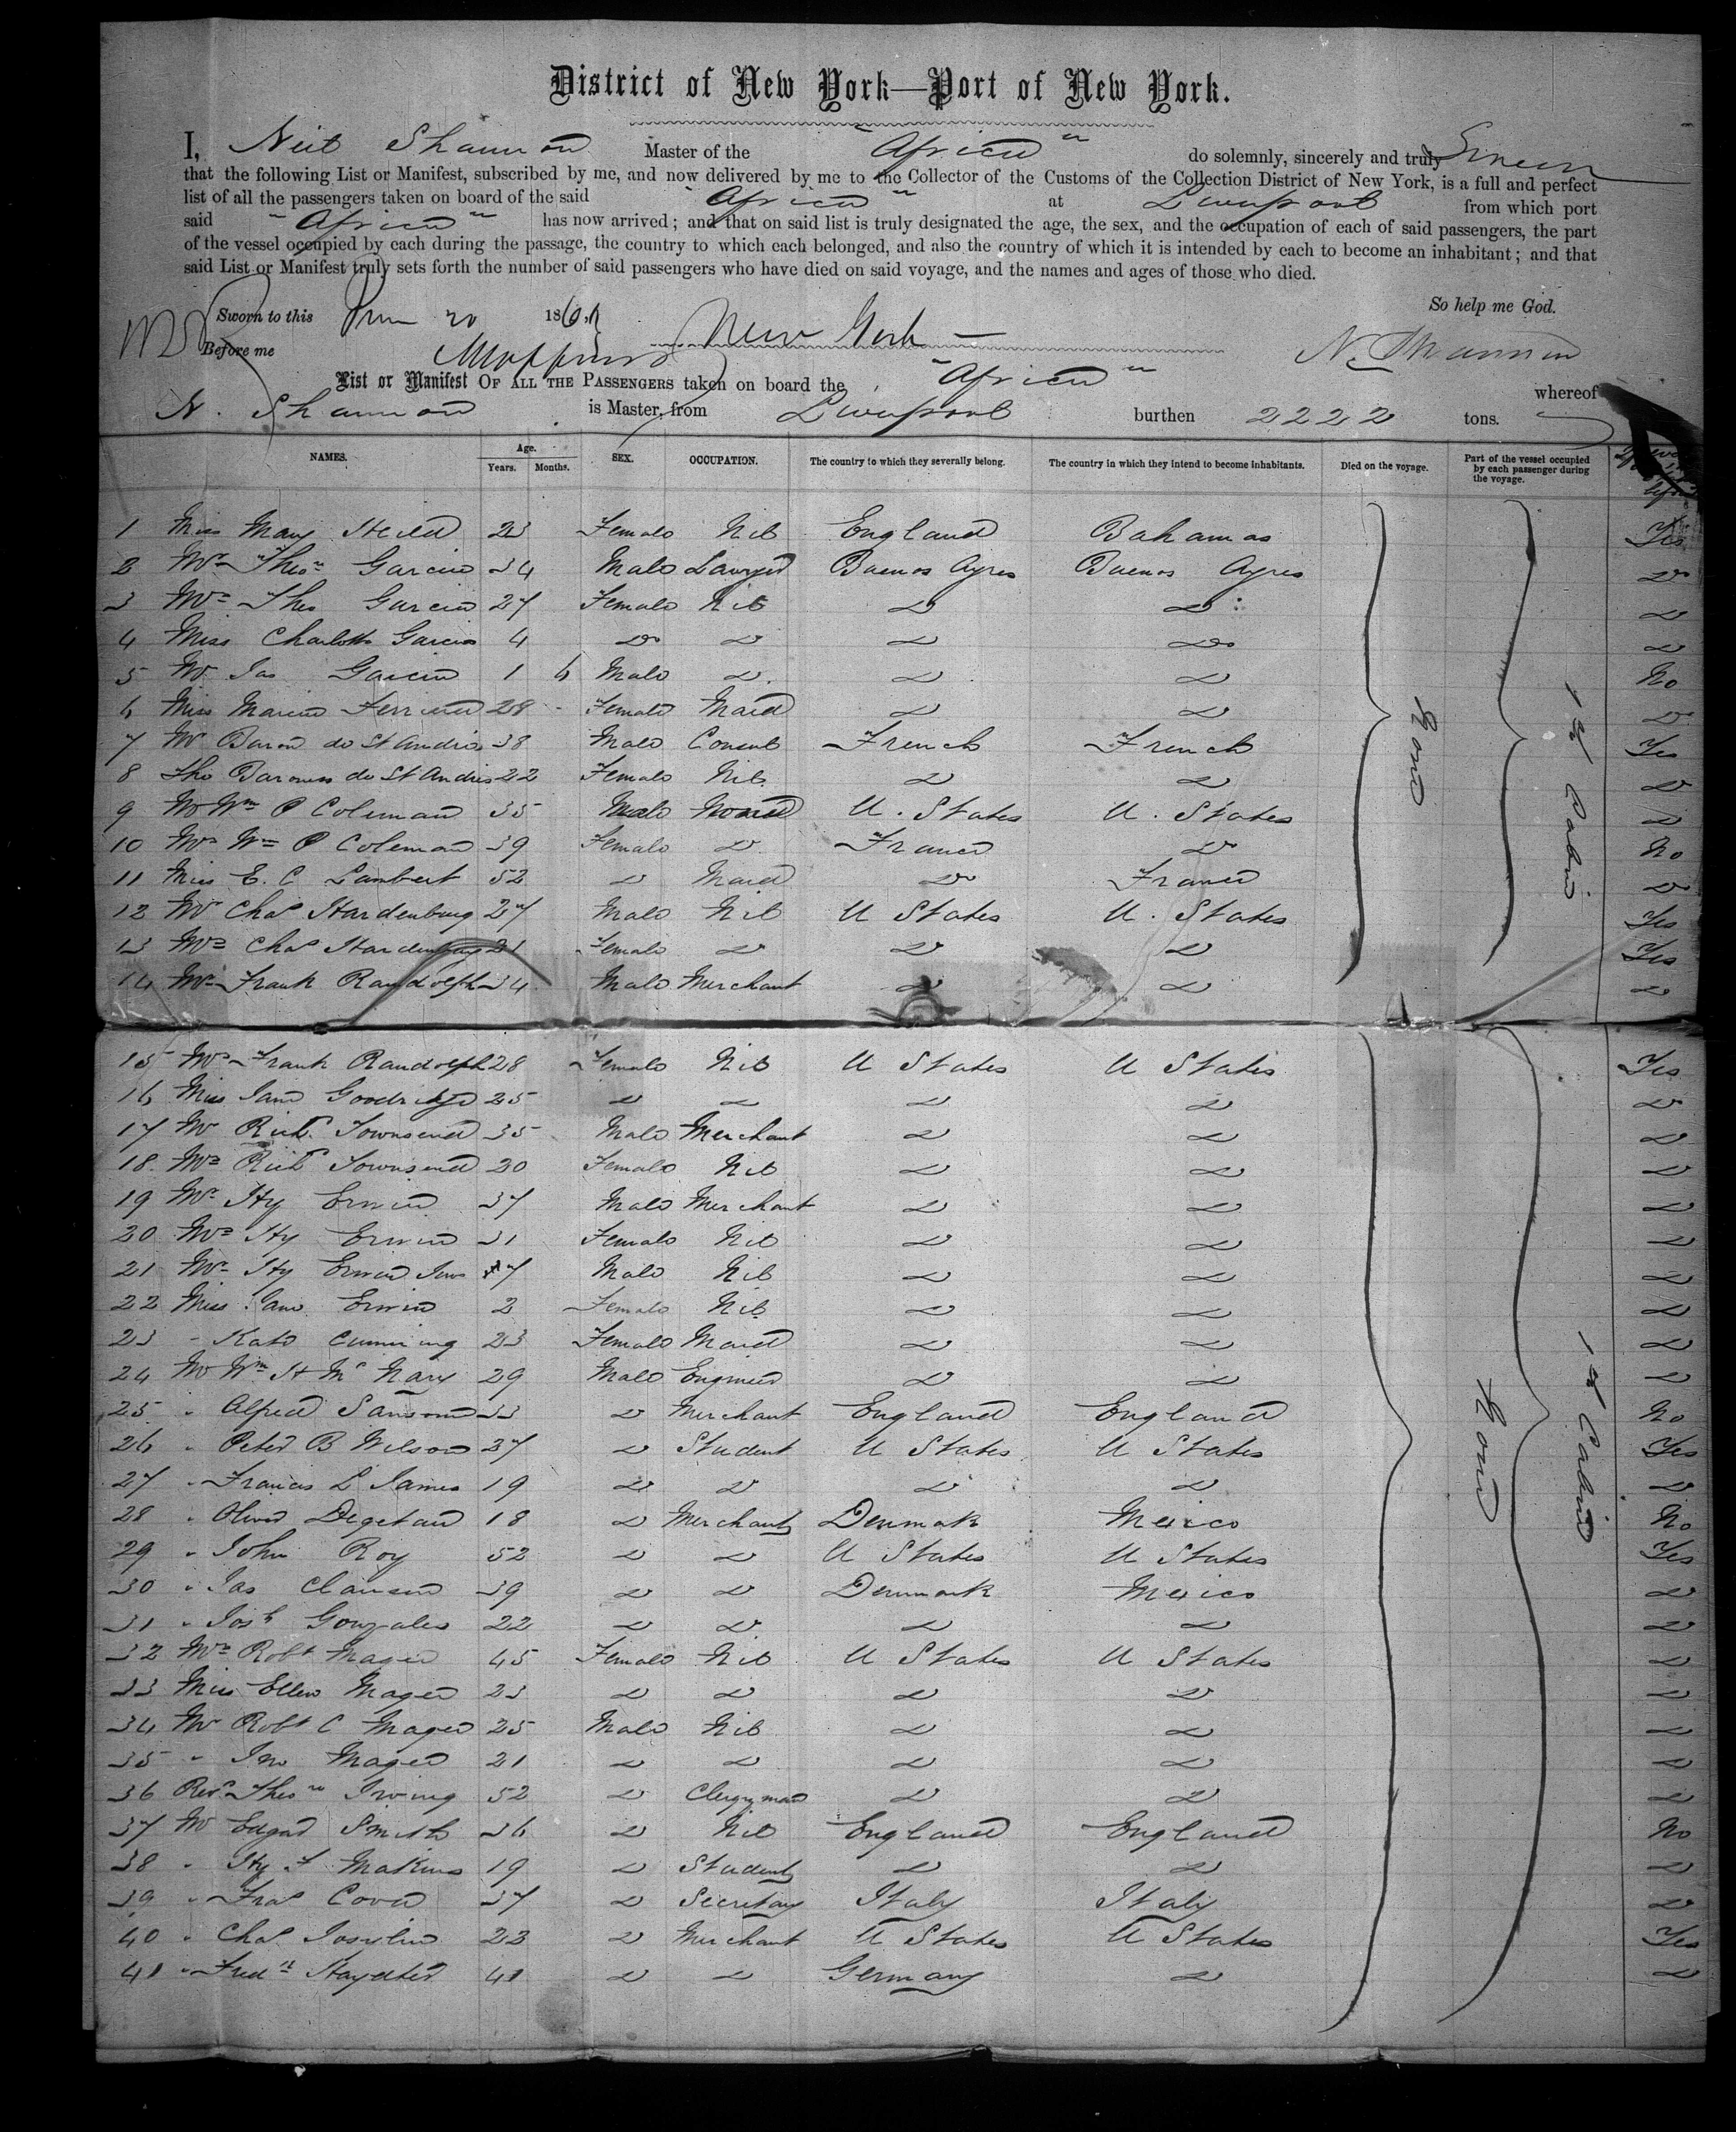 District of New York—Port of New York.
I, Neil Shannon Master of the "Africa" do solemnly, sincerely and truly Swear
that the following List or Manifest, subscribed by me, and now delivered by me to the Collector of the Customs of the Collection District of New York, is a full and perfect
list of all the passengers taken on board of the said "Africa" at Liverpool from which port
said "Africa" has now arrived; and that on said list is truly designated the age, the sex, and the occupation of each of said passengers, the part
of the vessel occupied by each during the passage, the country to which each belonged, and also the country of which it is intended by each to become an inhabitant; and that
said List or Manifest truly sets forth the number of said passengers who have died on said voyage, and the names and ages of those who died.
So help me God.
Sworn to this 20 186
Before me New York N. Shannon
List or Manifest OF ALL THE PASSENGERS taken on board the "Africa" whereof
N. Shannon is Master, from Liverpool burthen 2222 tons.
NAMES. Age. Years. Months. SEX. OCCUPATION. The country to which they severally belong. The country in which they intend to become inhabitants. Died on the voyage. Part of the vessel occupied by each passenger during the voyage.
1 Miss Mary 23 Female Nil England Bahamas Yes
2 Mr Thos Garcia 34 Male Lawyer Buenos Ayres Buenos Ayres Do
3 Mrs Thos Garcia 27 Female Nil Do Do Do
4 Miss Charlotte Garcia 4 Do Do Do Do Do
5 Mr Jas Garcia 1 6 Male Do Do Do No
6 Miss Maria 28 Female Maid Do Do Do
7 Mr Baron de St Andre 38 Male Consul French French Yes
8 The Baroness de St Andre 22 Female Nil Do Do Do
9 Mr Wm P Coleman 35 Male U. States U. States Do
10 Mrs Wm P Coleman 39 Female Do France Do No
11 Miss E. C Lambert 52 Do Maid Do France Do
12 Mr Chas Hardenburg 27 Male Nil U States U. States Yes
13 Mrs Chas Hardenburg 21 Female Do Do Do Yes
14 Mr Frank Randolph 34 Male Merchant Do Do Do
1st Cabin
15 Mrs Frank Randolph 28 Female Nil U States U States Yes
16 Miss Jane Goodridge 25 Do Do Do Do Do
17 Mr Richd Townsend 35 Male Merchant Do Do Do
18 Mrs Richd Townsend 30 Female Nil Do Do Do
19 Mr Hy Erwin 37 Male Merchant Do Do Do
20 Mrs Hy Erwin 31 Female Nil Do Do Do
21 Mr Hy Erwin Junr 7 Male Nil Do Do Do
22 Miss Jane Erwin 2 Female Nil Do Do Do
23 " Kate Cumming 23 Female Maid Do Do Do
24 Mr Wm H Mc Nary 29 Male Engineer Do Do Do
25 " Alfred Sansom 33 Do Merchant England England No
26 " Peter B Wilson 27 Do Student U States U States Yes
27 " Francis L James 19 Do Do Do Do Do
28 " Oliver Degetau 18 Do Merchant Denmark Mexico No
29 " John Roy 52 Do Do U States U States Yes
30 " Jas Clausen 39 Do Do Denmark Mexico Do
31 " Josh Gonzales 22 Do Do Do Do Do
32 Mrs Robt Magee 45 Female Nil U States U States Do
33 Miss Ellen Magee 23 Do Do Do Do Do
34 Mr Robt C Magee 25 Male Nil Do Do Do
35 " Jno Magee 21 Do Do Do Do Do
36 Revd Thos Irving 52 Do Clergyman Do Do Do
37 Mr Edgar Smith 36 Do Nil England England No
38 " Hy F Makins 19 Do Student Do Do Do
39 " Fras Cova 37 Do Secretary Italy Italy Do
40 " Chas Joslin 23 Do Merchant U States U States Yes
41 " Fredk 41 Do Do Germany Do Do
1st Cabin